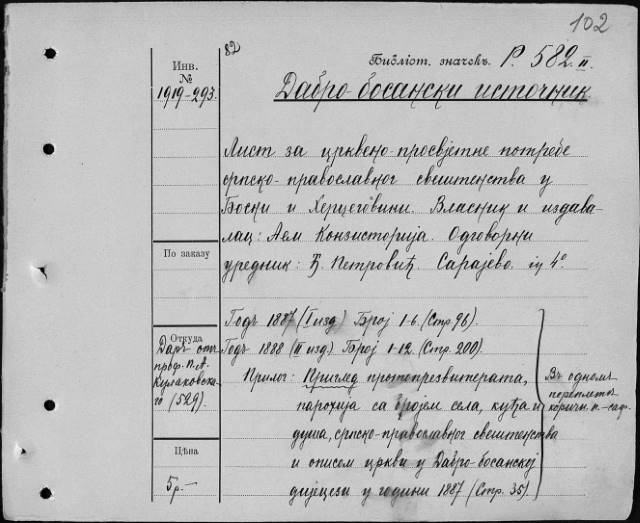 102
82
Библіот. значекъ. Р. 582. II.
Дабро-босански источник
Инв.
№
1919-293.
Лист за црквено-просвјетне потребе
српско-православног свештенства у
Босни и Херцеговини. Власник и издава-
лац: Аем Конзисторија. Одговорни
уредник: Ђ. Петровић. Сарајево. in 4°.
По заказу
Годъ 1887 (I изд) Број 1-6. (Стр. 96).
Годъ 1888 (II изд) Број 1-12. (Стр. 200).
Прилог: Приглед протопрезвитерата,
парохија са бројем села, кућа и
душа, српско-православног свештенства
и описем цркви у Дабро-босанској
дијецези у години 1887 (Стр. 35).
Въ одномъ
переплетѣ
коричн. п.-саф.
Откуда
Даръ отъ
проф. П. А.
Кулаковска-
го (529).
Цѣна
5 р-